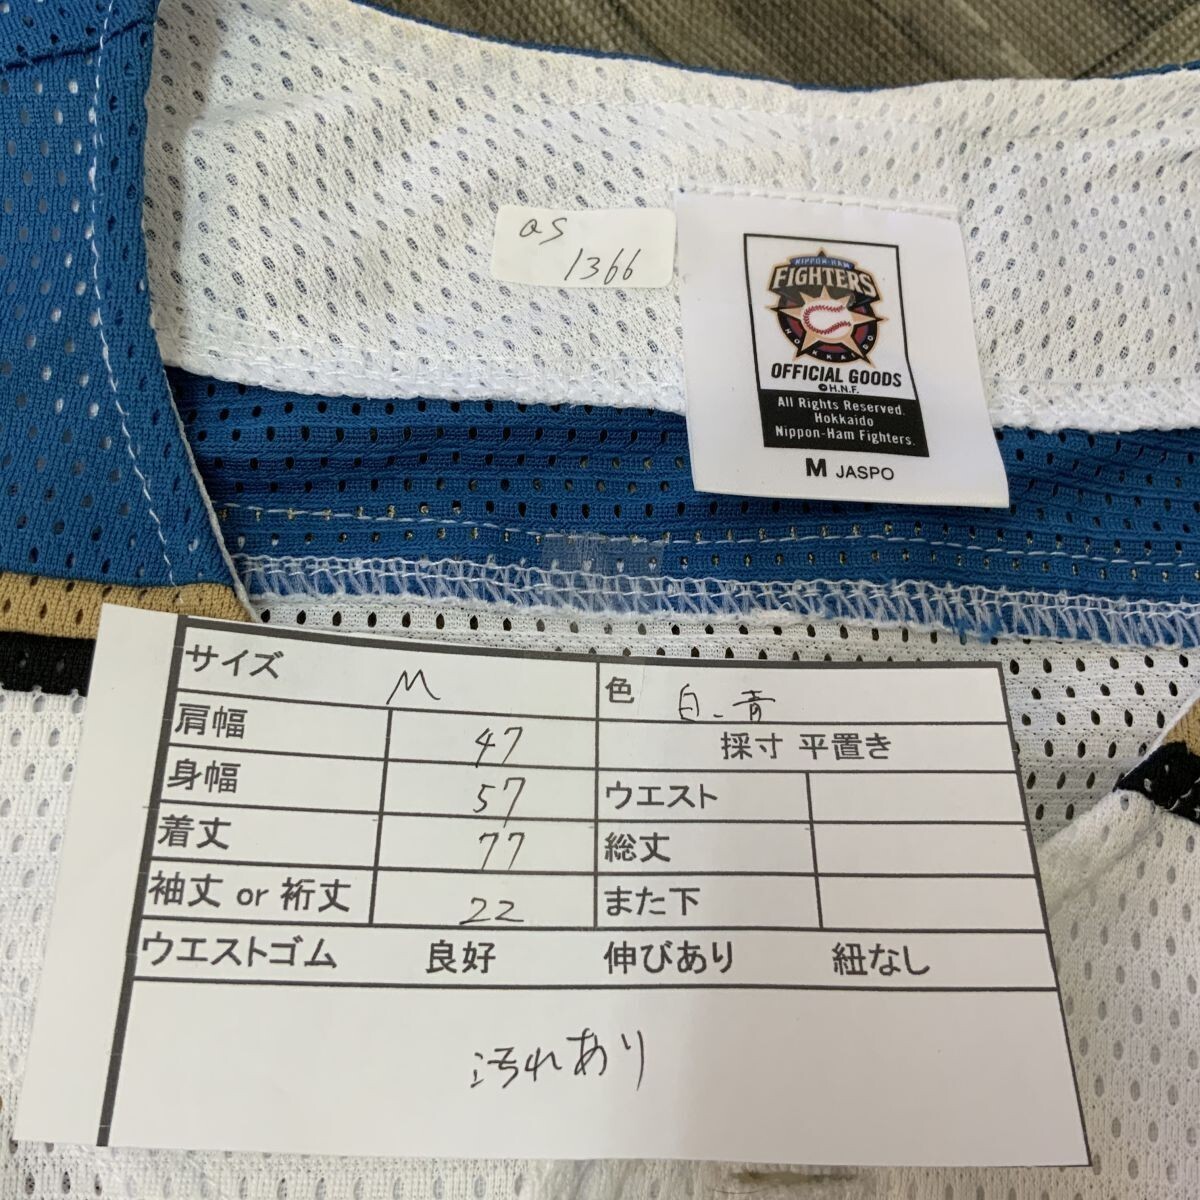 as
1366
NIPPON-HAM
FIGHTERS
HOKKAIDO
OFFICIAL GOODS
©H.N.F.
All Rights Reserved.
Hokkaido
Nippon-Ham Fighters.
M JASPO
サイズ M 色 白、青
肩幅 47 採寸 平置き
身幅 57 ウエスト
着丈 77 総丈
袖丈 or 裄丈 22 また下
ウエストゴム 良好 伸びあり 紐なし
汚れあり